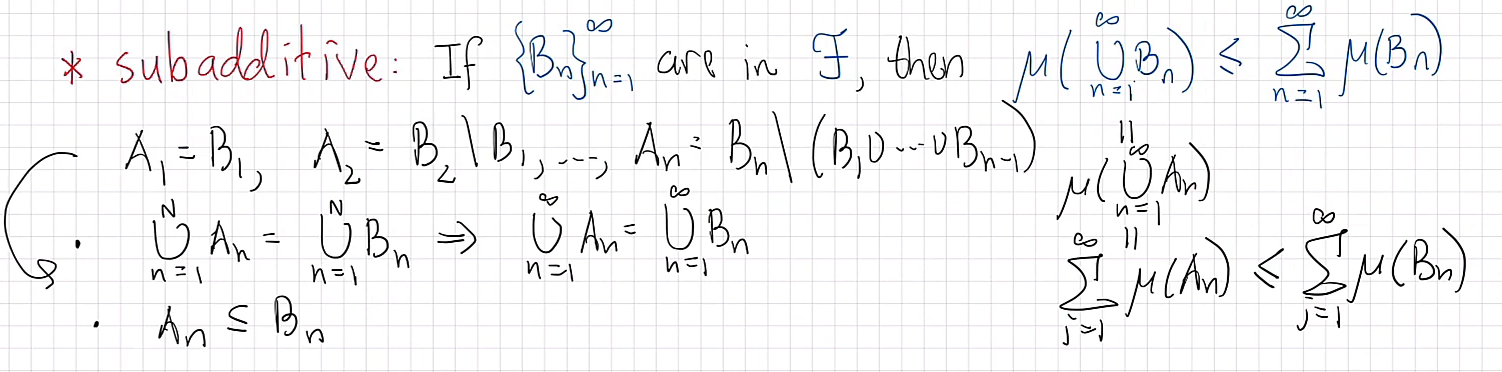 * subadditive: If {Bₙ}ₙ₌₁^∞ are in ℱ, then μ(⋃ₙ₌₁^∞ Bₙ) ≤ ∑ₙ₌₁^∞ μ(Bₙ)
A₁ = B₁, A₂ = B₂ \ B₁, ..., Aₙ = Bₙ \ (B₁ ∪ ⋯ ∪ Bₙ₋₁)
||
μ(⋃ₙ₌₁^∞ Aₙ)
· ⋃ₙ₌₁^N Aₙ = ⋃ₙ₌₁^N Bₙ ⇒ ⋃ₙ₌₁^∞ Aₙ = ⋃ₙ₌₁^∞ Bₙ
||
∑ⱼ₌₁^∞ μ(Aₙ) ≤ ∑ⱼ₌₁^∞ μ(Bₙ)
· Aₙ ⊆ Bₙ